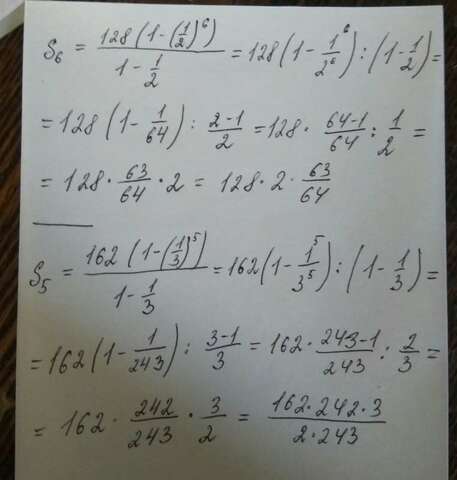 S₆ = 128(1-(1/2)⁶) / (1-1/2) = 128(1-1⁶/2⁶):(1-1/2)=
=128(1-1/64): (2-1)/2 =128· (64-1)/64 : 1/2 =
= 128·63/64·2 = 128·2·63/64
S₅ = 162(1-(1/3)⁵) / (1-1/3) = 162(1-1⁵/3⁵):(1-1/3)=
=162(1-1/243): (3-1)/3 = 162·(243-1)/243 : 2/3 =
= 162·242/243·3/2 = (162·242·3)/(2·243)